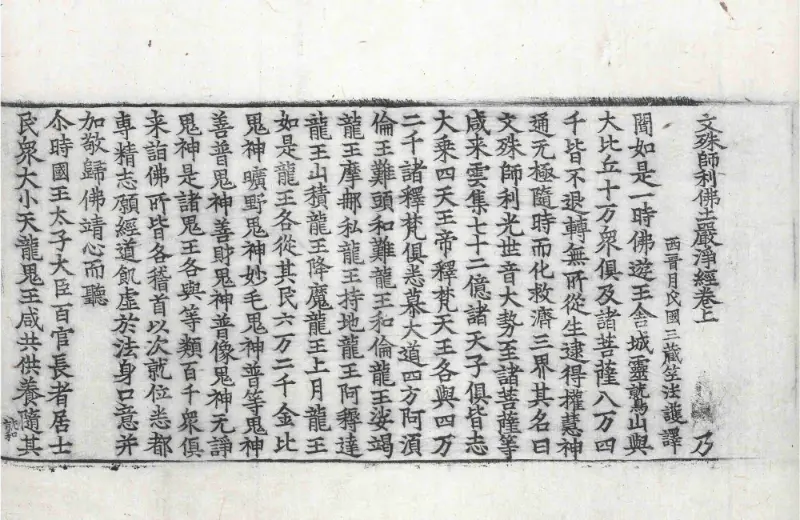 文殊師利佛土嚴淨經卷上 乃
西晉月氏國三藏竺法護譯
聞如是一時佛遊王舍城靈鷲山與
大比丘十万衆俱及諸菩薩八万四
千皆不退轉無所從生逮得權慧神
通無極隨時而化救濟三界其名曰
文殊師利光世音大勢至諸菩薩等
咸來雲集七十二億諸天子俱皆志
大乘四天王帝釋梵天王各與四万
二千諸釋梵俱悉慕大道四方阿須
倫王難頭和難龍王和倫龍王娑竭
龍王摩那私龍王持地龍王阿耨達
龍王山積龍王降魔龍王上月龍王
如是龍王各從其民六万二千金比
鬼神曠野鬼神妙毛鬼神普等鬼神
善普鬼神善財鬼神普像鬼神无諍
鬼神是諸鬼王各與等類百千衆俱
來詣佛所皆各稽首以次就位悉都
專精志願經道飢虛於法身口意并
加敬歸佛靖心而聽
尒時國王太子大臣百官長者居士
民衆大小天龍鬼王咸共供養隨其